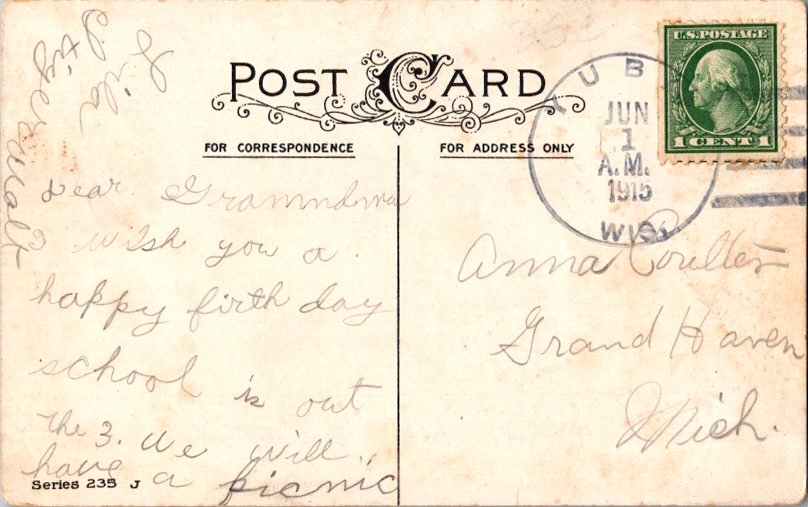 POST CARD
FOR CORRESPONDENCE
FOR ADDRESS ONLY
U.S. POSTAGE
1 CENT 1
UB
JUN
1
A.M.
1915
WIS.
Dear Grammdma
I wish you a
happy firth day
school is out
the 3. we will
have a picnic
Lila
Anna Coulter
Grand Haven
Mich.
Series 235 J